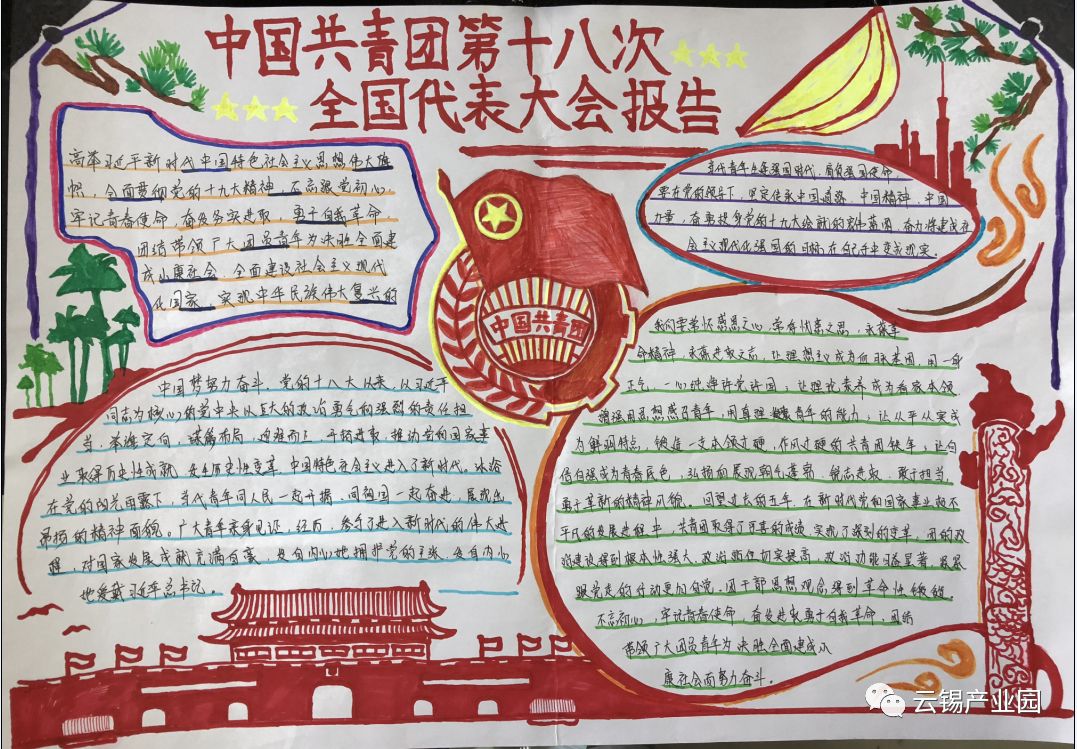 中国共青团第十八次
全国代表大会报告
高举习近平新时代中国特色社会主义思想伟大旗
帜，全面贯彻党的十九大精神，不忘跟党初心
牢记青春使命，奋发务实进取，勇于自我革命，
团结带领广大团员青年为决胜全面建
成小康社会，全面建设社会主义现代
化国家，实现中华民族伟大复兴的
当代青年生逢强国时代，肩负强国使命，
要在党的领导下，坚定传承中国道路，中国精神，中国
力量，奋勇投身党的十九大绘就的宏伟蓝图，奋力将建成社
会主义现代化强国的目标在自己手中变成现实。
中国共青团
中国梦努力奋斗，党的十八大以来，以习近平
同志为核心的党中央以巨大的政治勇气和强烈的责任担
当，举旗定向，谋篇布局，迎难而上，开拓进取，推动党和国家事
业取得历史性成就，发生历史性变革，中国特色社会主义进入了新时代。沐浴
在党的阳光雨露下，当代青年同人民一起开拓，同祖国一起奋进，展现出
昂扬的精神面貌。广大青年亲身见证，经历，参与了进入新时代的伟大进
程，对国家发展成就充满自豪，发自内心地拥护党的主张，发自内心
地爱戴习近平总书记。
我们要常怀感恩之心，常存忧患之思，永葆革
命精神，永葆进取之志，让理想主义成为血脉基因，用一身
正气，一心纯粹许党许国；让理论素养成为看家本领
增强用思想感召青年，用真理 青年的能力；让从严从实成
为鲜明特点，锻造一支本领过硬，作风过硬的共青团铁军；让自
信自强成为青春底色，弘扬和展现朝气蓬勃，锐志进取，敢于担当，
勇于革新的精神风貌。回望过去的五年，在新时代党和国家事业极不
平凡的发展进程中，共青团取得了可喜的成绩，实现了深刻的变革，团的政
治建设得到根本性强大，政治站位切实提高，政治功能日益显著，紧紧
跟党走的行动更加自觉。团干部思想观念得到革命性锻造，
不忘初心，牢记青春使命，奋发进取勇于自我革命，团结
带领广大团员青年为决胜全面建成小
康社会而努力奋斗。
云锡产业园